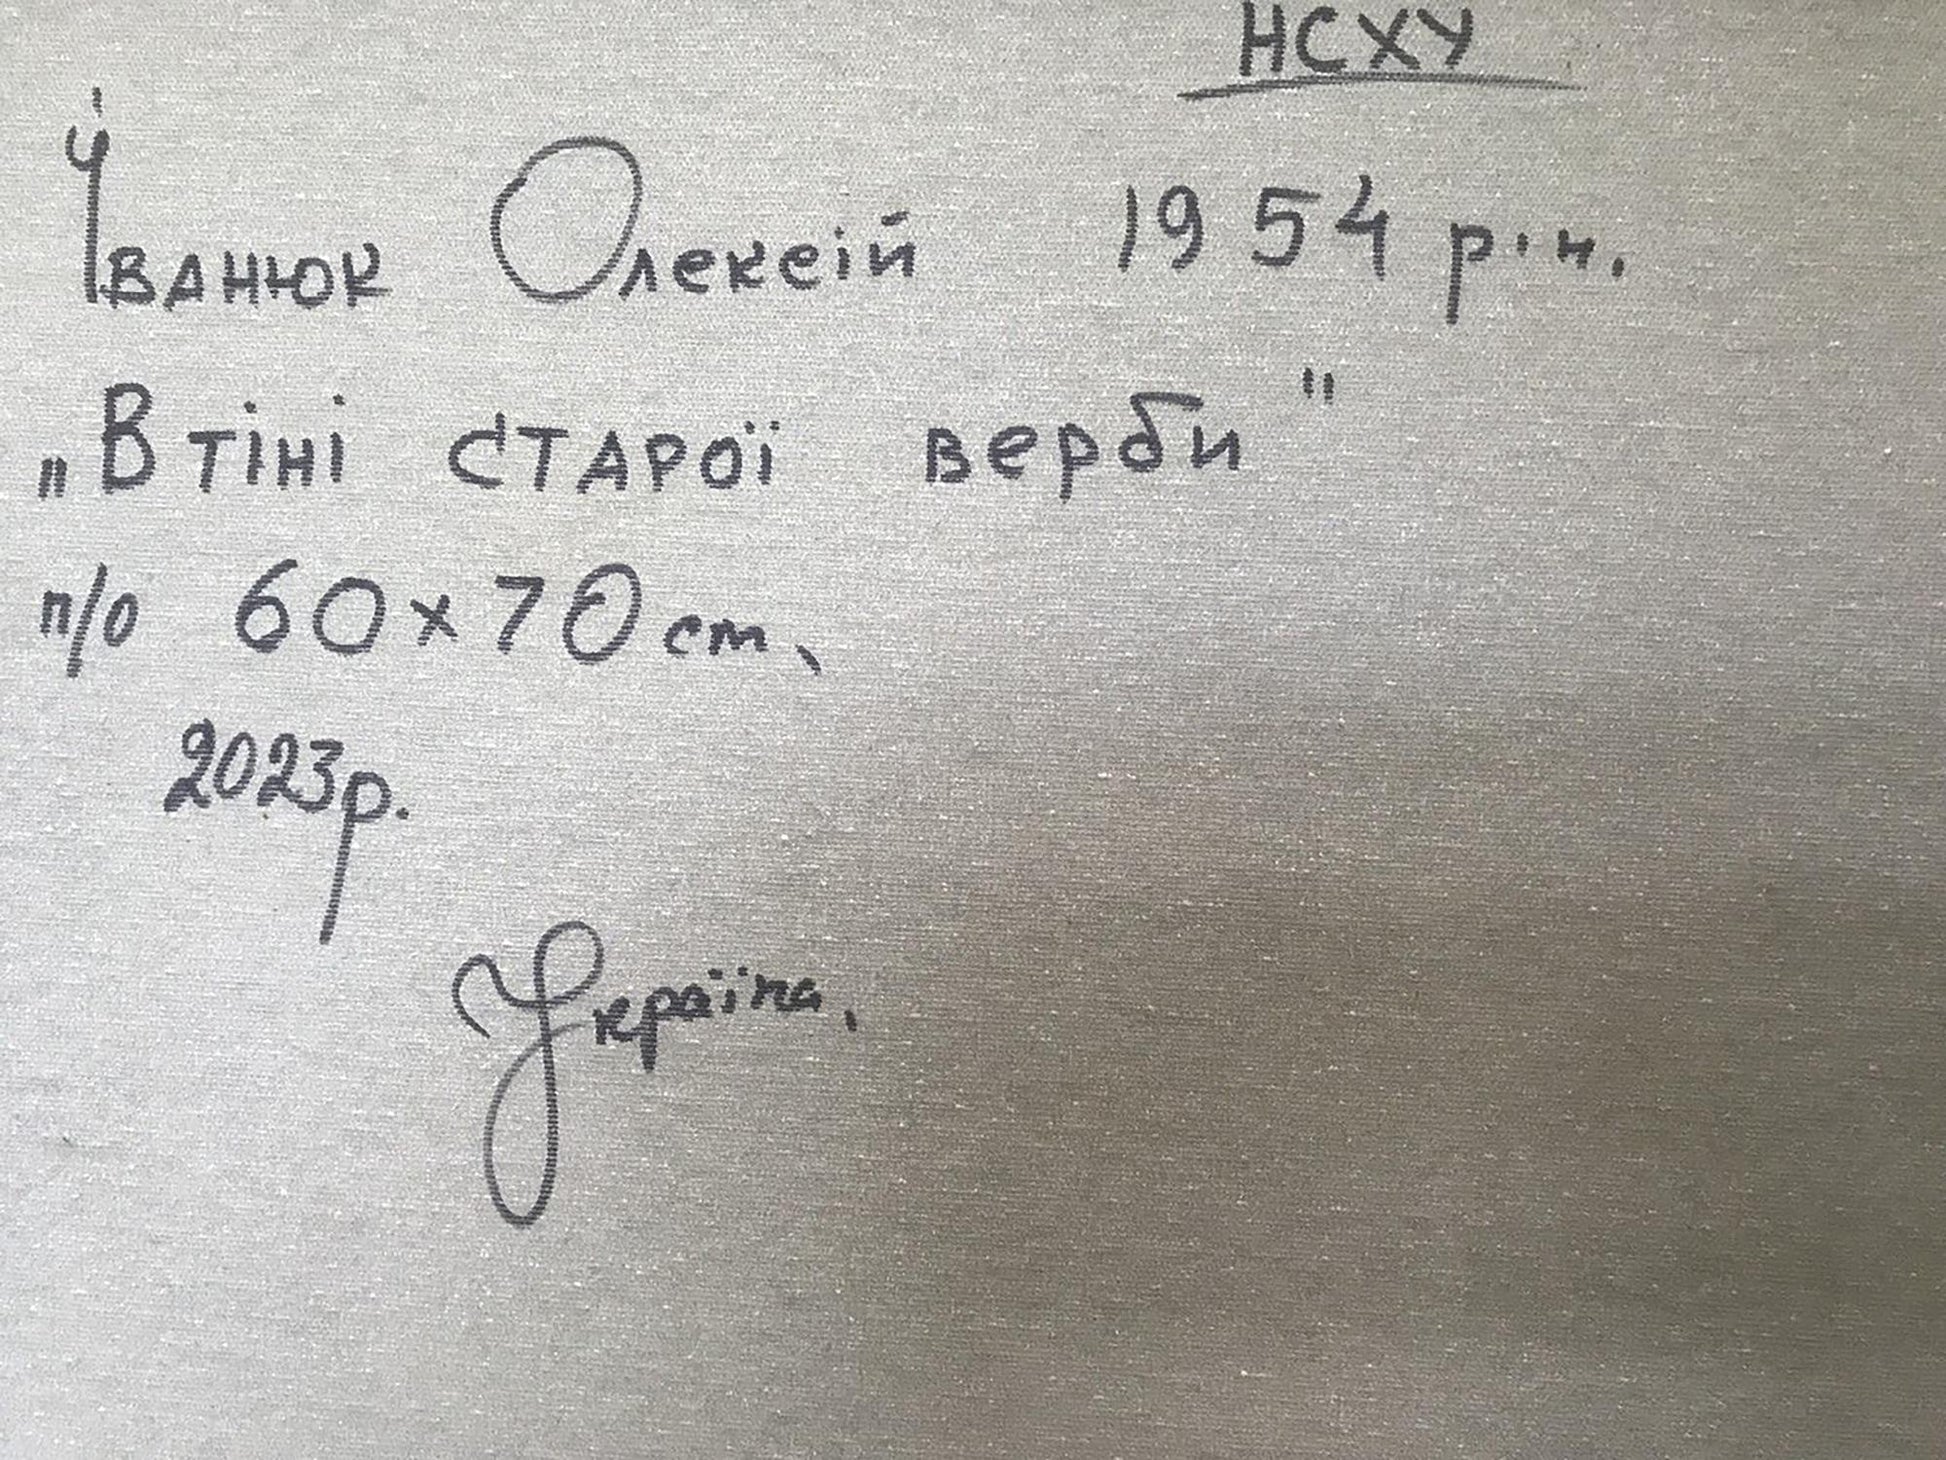 НСХУ
Іванюк Олексій 1954 р.н.
„В тіні старої верби"
п/о 60х70 ст,
2023р.
Україна,